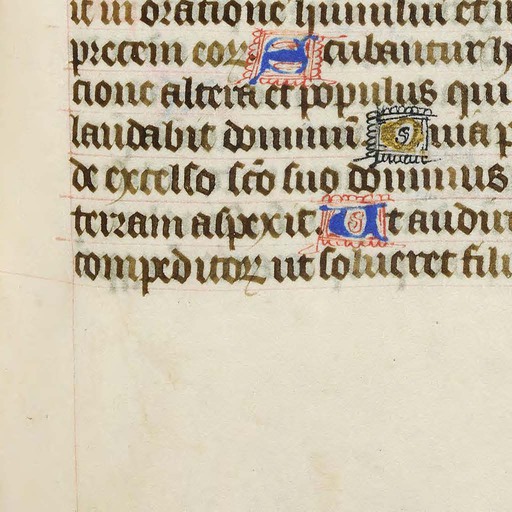 it in oratione humiliu et n
precem eoꝝ Scribantur h
tione altera et populus qui
laudabit dominū Quia p
de excelso sc̄o suo dominus
terram aspexit. Ut audire
compeditoꝝ ut solueret fili